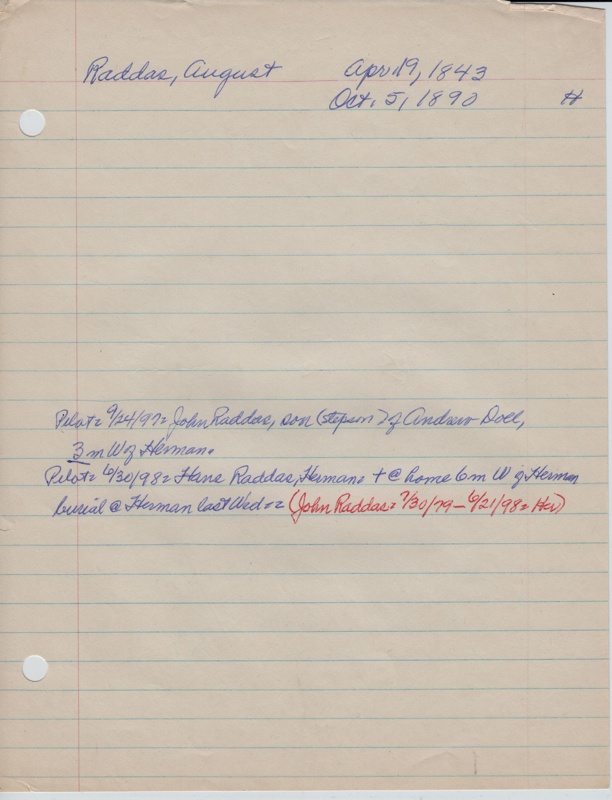 Raddas, August Apr. 19, 1843
Oct. 5, 1890 H
Pilot= 9/24/97= John Raddas, son (stepson) of Andrew Doll,
3 m W of Herman.
Pilot= 6/30/98= Hans Raddas, Herman= + @ home 6 m W of Herman
burial @ Herman last Wed.= (John Raddas= 7/30/79 – 6/21/98= Her)